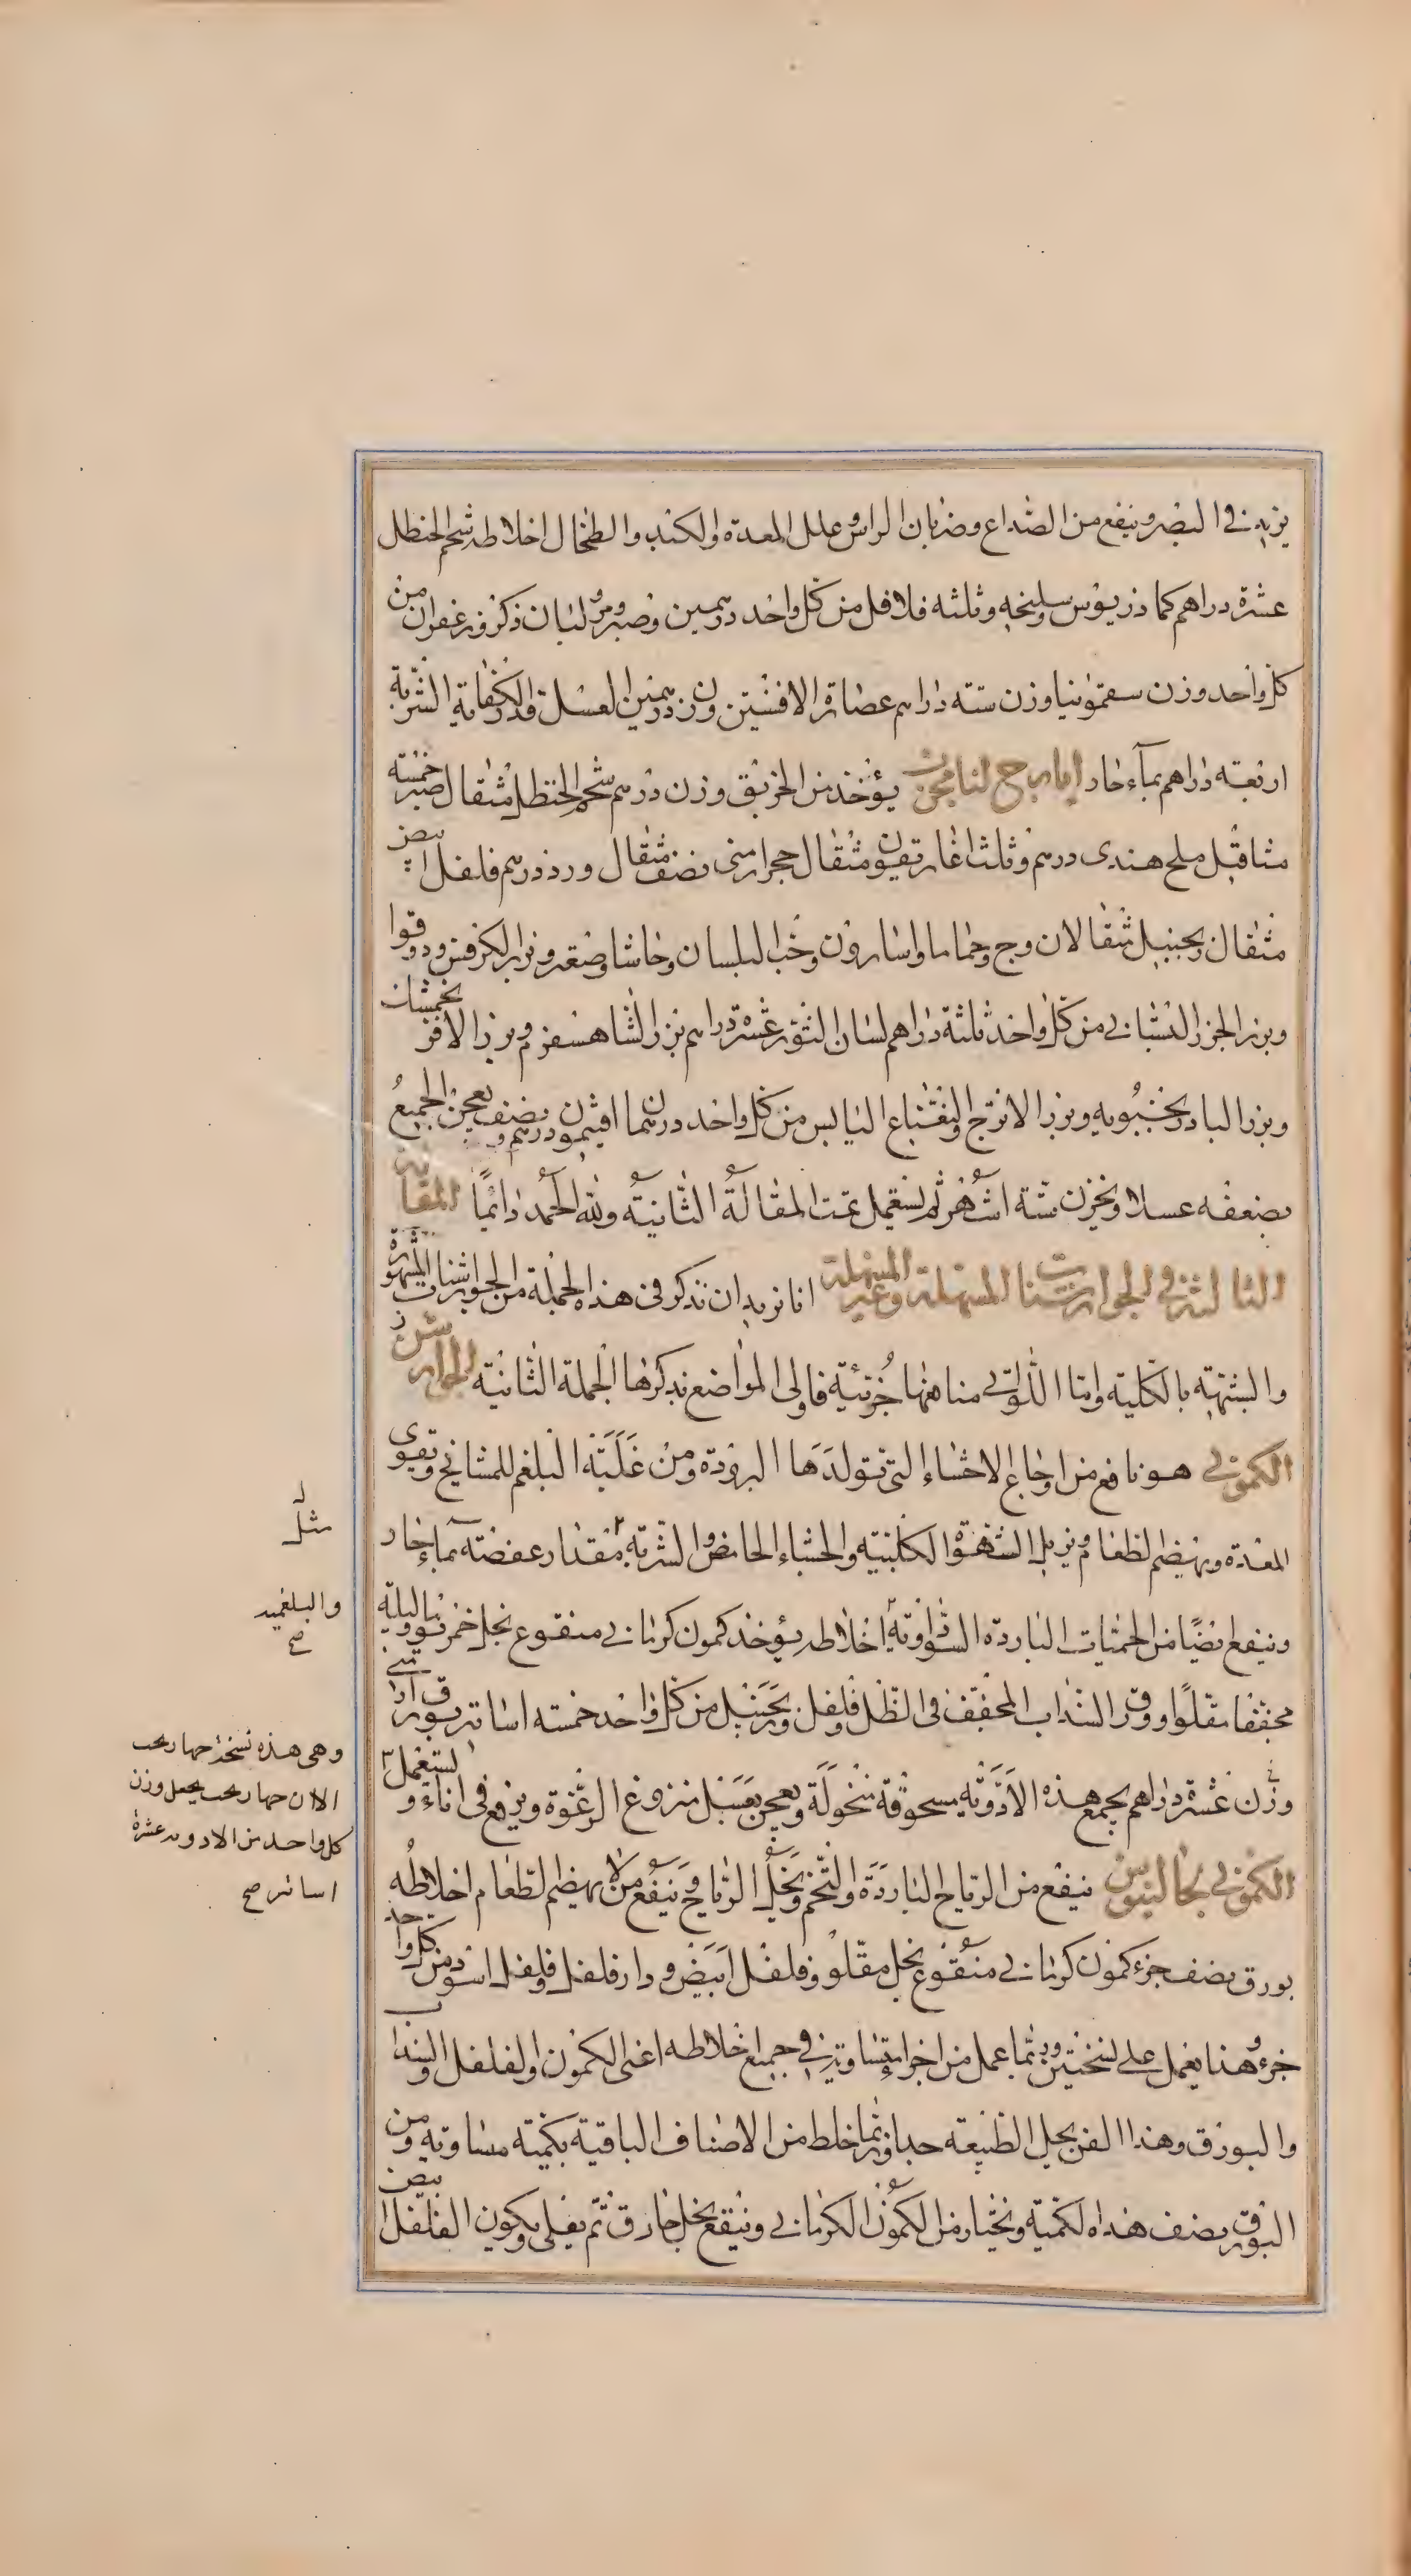 يزيد في البصر وينفع من الصداع وضربان الراس وعلل المعدة والكبد والطحال اخلاطه شحم الحنظل
عشرة دراهم كماذريوس سليخه وثلثه فلافل من كل واحد درهمين وصبر ومر ولبان ذكر وزعفران من
كل واحد وزن سقمونيا وزن ستة دراهم عصارة الافسنتين وزن درهمين العسل قدر الكفاية الشربة
اربعة دراهم بماء حار ايارج لنا مجرب يؤخذ من الخربق وزن درهم شحم الحنظل مثقال صبر خمسة
مثاقيل ملح هندى درهم وثلث اغاريقون مثقال حجر ارمنى نصف مثقال ورد درهم فلفل ابيض
مثقال زنجبيل مثقالان وج وحماما واسارون وحب البلسان وحاشا وصعتر وبزر الكرفس ودوقوا
وبزر الجزر البستاني من كل واحد ثلثة دراهم لسان الثور عشرة دراهم بزر الشاهسفرم وبزر الافرنجمشك
وبزر البادرنجبويه وبزر الاترج والنعناع اليابس من كل واحد درهمان افتيمون درهم ونصف يعجن الجميع
بضعفه عسلا ويخزن ستة اشهر ثم يستعمل تمت المقالة الثانية ولله الحمد دائما المقالة
الثالثة في الجوارشنات المسهلة وغير المسهلة انا نريد ان نذكر في هذه الجملة من الجوارشنات المشهورة
والبشتهته بالكلية واما اللواتي منافعها جزئية فاولى المواضع بذكرها الجملة الثانية الجوارشن
الكموني هو نافع من اوجاع الاحشاء التي تتولدها البرودة ومن غلبة البلغم للمشايخ ويقوى
المعدة ويهضم الطعام ويزيل الشهوة الكلبية والجشاء الحامض والشربة مقدار عفصة بماء حار
وينفع ايضا من الحميات الباردة السوداوية اخلاطه يؤخذ كمون كرماني منقوع بخل خمر يوما وليلة
مجففا مقلوا وورق السذاب المجفف في الظل وفلفل وزنجبيل من كل واحد خمسة اساتير بورق ارمني
وزن عشرة دراهم يجمع هذه الادوية مسحوقة منخولة ويعجن بعسل منزوع الرغوة ويرفع في اناء ويستعمل
الكموني لجالينوس ينفع من الرياح الباردة والتخم ويحل الرياح وينفع من لا يهضم الطعام اخلاطه
بورق نصف جزء كمون كرماني منقوع بخل مقلو وفلفل ابيض ودار فلفل وفلفل اسود من كل واحد
جزء وهذا يعمل على نسختين وربما عمل من اجزاء متساوية في جميع اخلاطه اعنى الكمون والفلفل والسذاب
والبورق وهذا الفن يحل الطبيعة جدا وربما خلط من الاصناف الباقية بكمية متساوية ومن
البورق نصف هذه الكمية ويختار من الكمون الكرماني وينقع بخل حاذق ثم يغلى ويكون الفلفل ابيض
مثل
والبلغميه
صح
وهى هذه نسخة
الان يجعل وزن
كل واحد من الادويه عشرة
اساتير صح